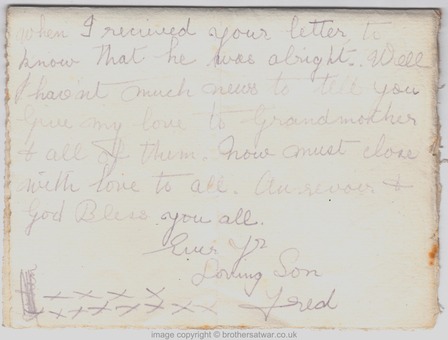 when I recived your letter to
know that he was alright. Well
I havnt much news to tell you
Give my love to Grandmother
& all of them. Now must close
with love to all. Au revoir &
God Bless you all.
Ever Yr
Loving Son
Fred
x x x x x
x x x x x x x
image copyright © brothersatwar.co.uk